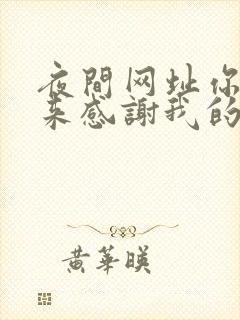 夜間网址你
来感謝我的
黄華暎